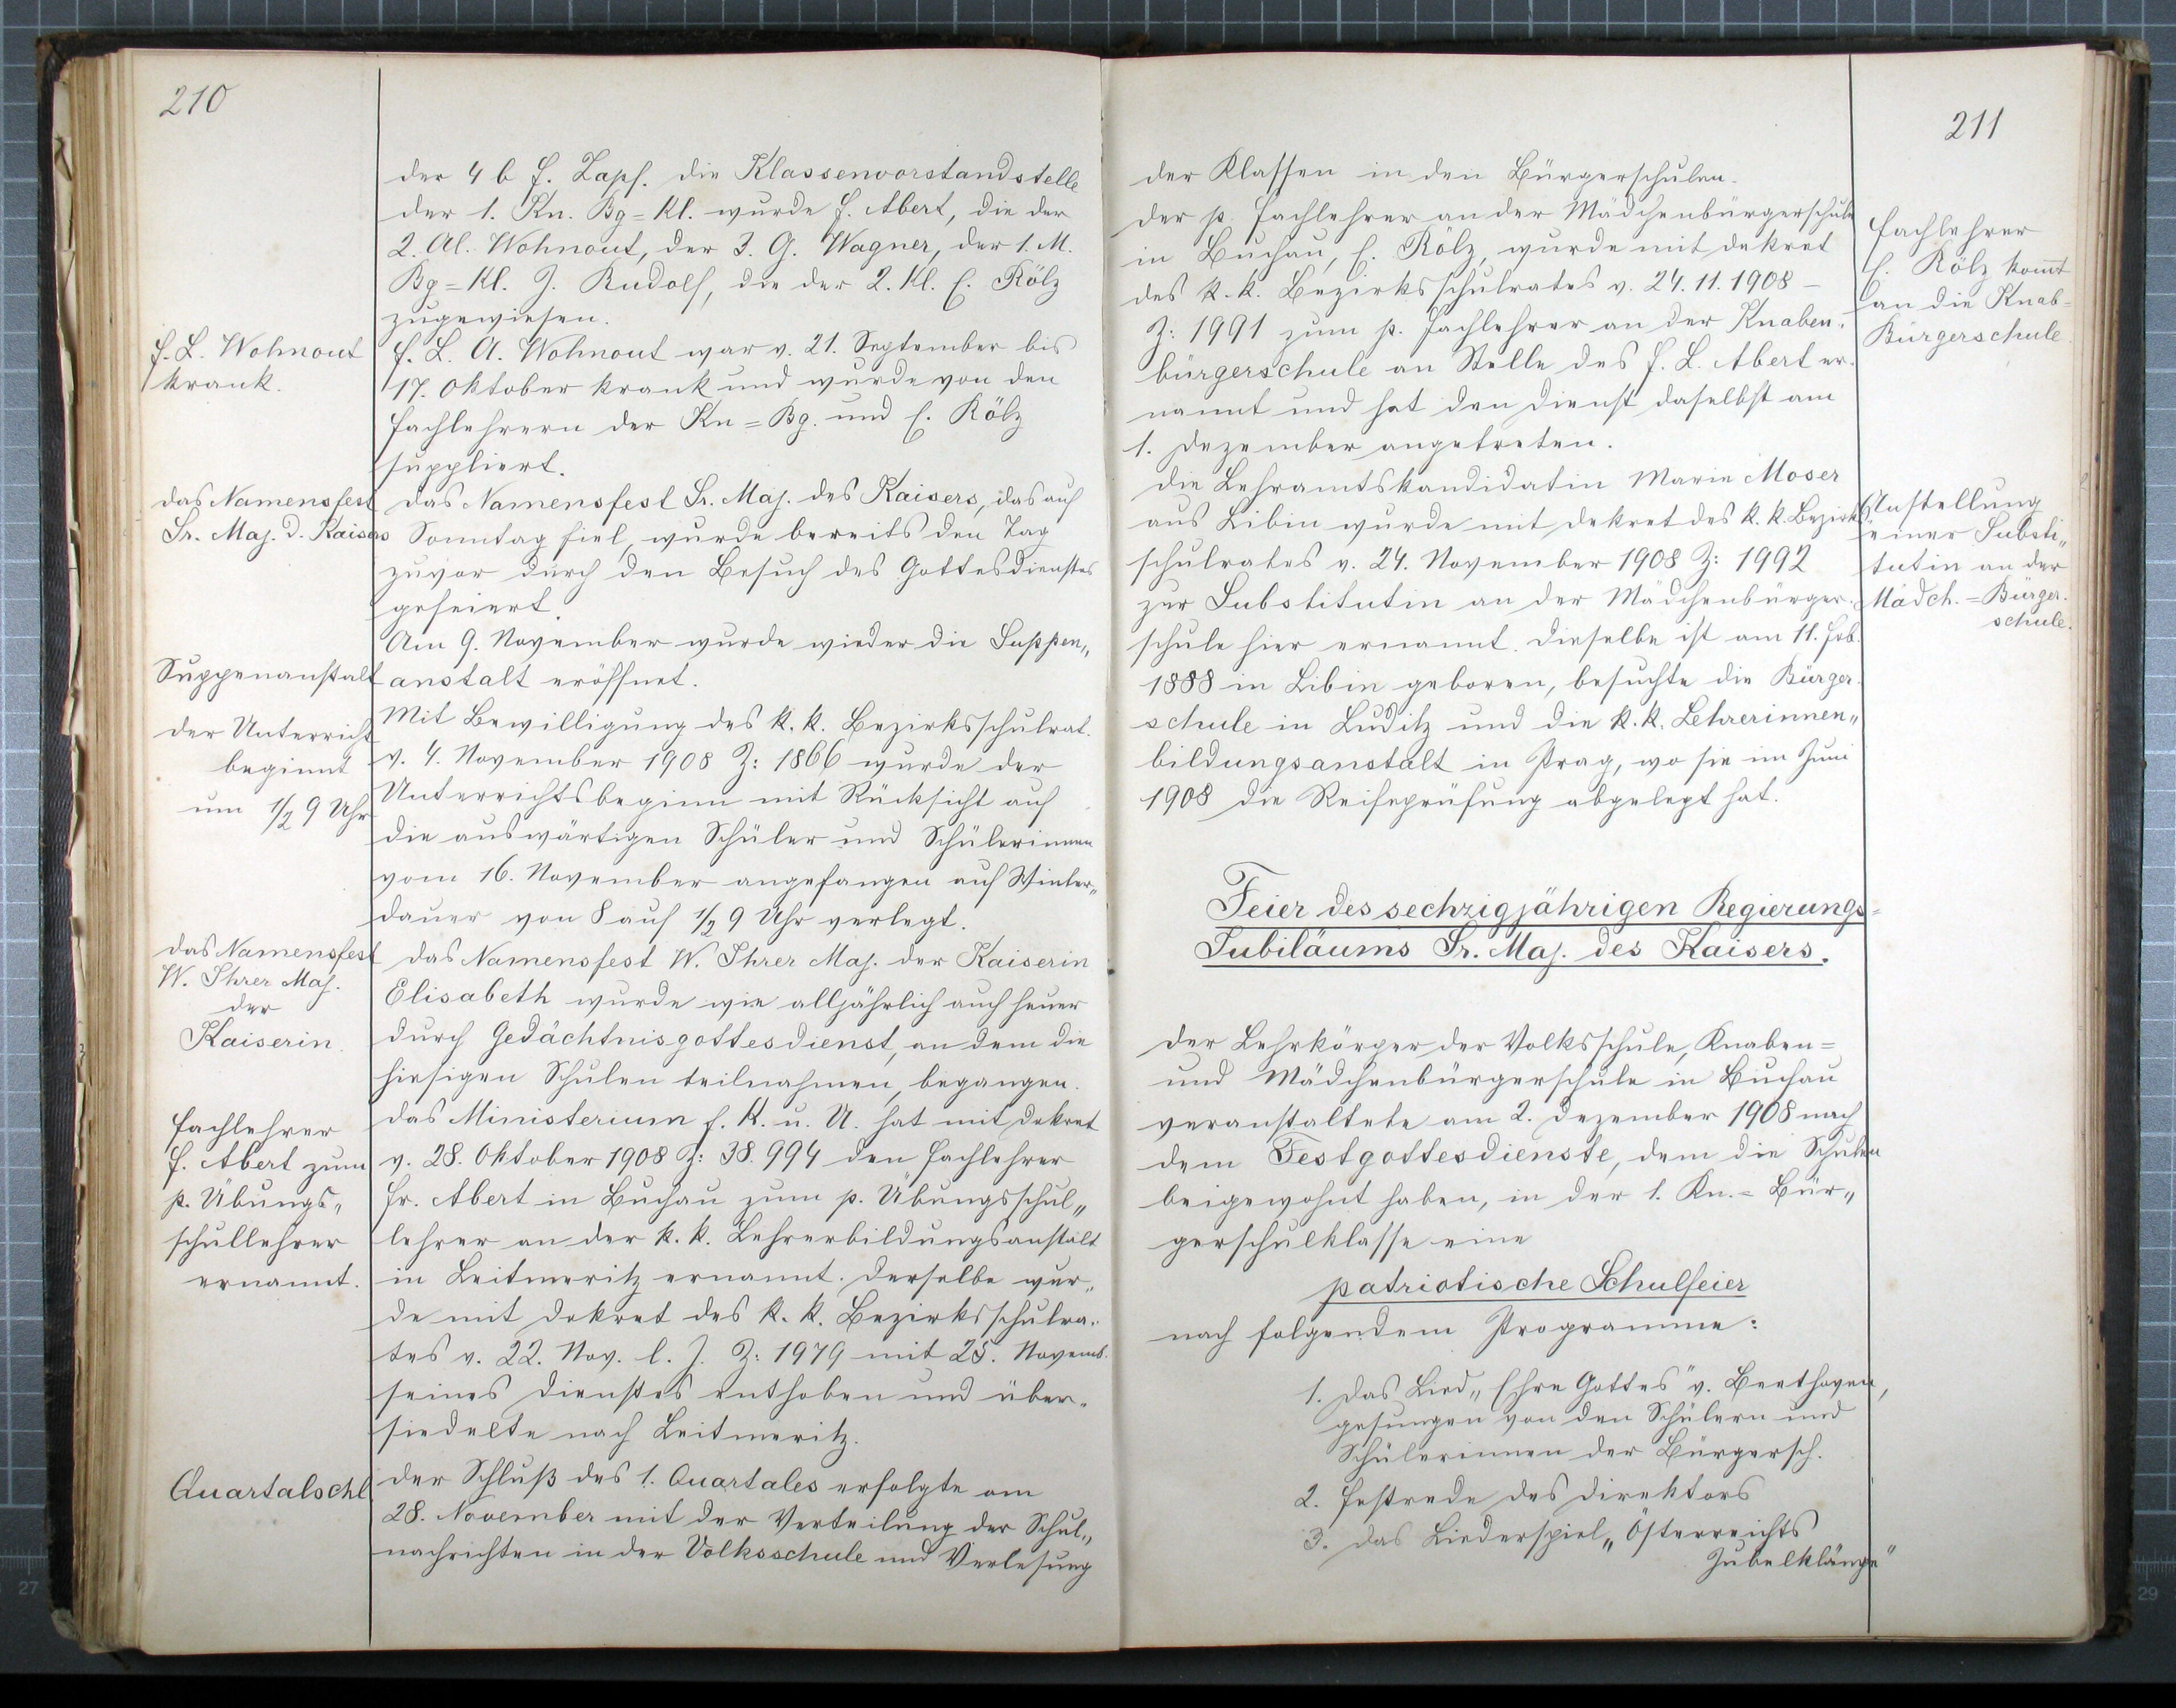 210
der 4 b F. Zapf. die Klassenvorstandstelle
der 1. Kn. Bg=Kl. wurde F. Abert, die der
2. Al. Wohnout, der 3. G. Wagner, der 1. M.
Bg=Kl. J. Rudolf, die der 2. Kl. E. Rölz
zugewiesen.
F. L. Wohnout
krank.
F. L. A. Wohnout war v. 21. September bis
17. Oktober krank und wurde von den
Fachlehrern der Kn=Bg. und E. Rölz
suppliert.
Das Namensfest
Sr. Maj. d. Kaisers
Das Namensfest Sr. Maj. des Kaisers, das auf
Sonntag fiel, wurde bereits den Tag
zuvor durch den Besuch des Gottesdienstes
gefeiert.
Am 9. November wurde wieder die Suppen„
Suppenanstalt
anstalt eröffnet.
Der Unterricht
beginnt
um 1/2 9 Uhr
Mit Bewilligung des k. k. Bezirksschulrat.
v. 4. November 1908 Z: 1866 wurde der
Unterrichtsbeginn mit Rücksicht auf
die auswärtigen Schüler und Schülerinnen
vom 16. November angefangen auf Winter„
dauer von 8 auf 1/2 9 Uhr verlegt.
Das Namensfest
W. Ihrer Maj.
der
Kaiserin.
Das Namensfest W. Ihrer Maj. der Kaiserin
Elisabeth wurde wie alljährlich auch heuer
durch Gedächtnisgottesdienst, an dem die
hiesigen Schulen teilnahmen, begangen.
Fachlehrer
F. Abert zum
p. Übungs„
schullehrer
ernannt.
Das Ministerium f. K. u. U. hat mit Dekret
v. 28. Oktober 1908 Z: 38.994 den Fachlehrer
Fr. Abert in Buchau zum p. Übungsschul„
lehrer an der k. k. Lehrerbildungsanstalt
in Leitmeritz ernannt. Derselbe wur„
de mit Dekret des k. k. Bezirksschulra„
tes v. 22. Nov. l. J. Z: 1979 mit 25. Novemb.
seines Dienstes enthoben und über„
siedelte nach Leitmeritz.
Quartalschl.
Der Schluß des 1. Quartales erfolgte am
28. November mit der Verteilung der Schul„
nachrichten in der Volksschule und Verlesung
211
der Klassen in den Bürgerschulen.
Der p. Fachlehrer an der Mädchenbürgerschule
in Buchau, E. Rölz, wurde mit Dekret
des k. k. Bezirksschulrates v. 24. 11. 1908 –
Z: 1991 zum p. Fachlehrer an der Knaben„
bürgerschule an Stelle des F. L. Abert er„
nannt und hat den Dienst daselbst am
1. Dezember angetreten.
Fachlehrer
E. Rölz kom̄t
an die Knab=
Bürgerschule.
Die Lehramtskandidatin Marie Moser
aus Libin wurde mit Dekret des k. k. Bezirks
schulrates v. 24. November 1908 Z: 1992
zur Substitutin an der Mädchenbürger„
schule hier ernannt. Dieselbe ist am 11. Feb.
1888 in Libin geboren, besuchte die Bürger„
schule in Luditz und die k. k. Lehrerinnen„
bildungsanstalt in Prag, wo sie im Juni
1908 die Reifeprüfung abgelegt hat.
Anstellung
einer Substi„
tutin an der
Mädch.=Bürger.
schule.
Feier des sechzigjährigen Regierungs=
Jubiläums Sr. Maj. des Kaisers.
Der Lehrkörper der Volksschule, Knaben=
und Mädchenbürgerschule in Buchau
veranstaltete am 2. Dezember 1908 nach
dem Festgottesdienste, dem die Schulen
beigewohnt haben, in der 1. Kn.=Bür„
gerschulklasse eine
patriotische Schulfeier
nach folgendem Programme:
1. Das Lied „Ehre Gottes“ v. Beethoven,
gesungen von den Schülern und
Schülerinnen der Bürgersch.
2. Festrede des Direktors
3. Das Liederspiel „Österreichs
Jubelklänge“
27
29